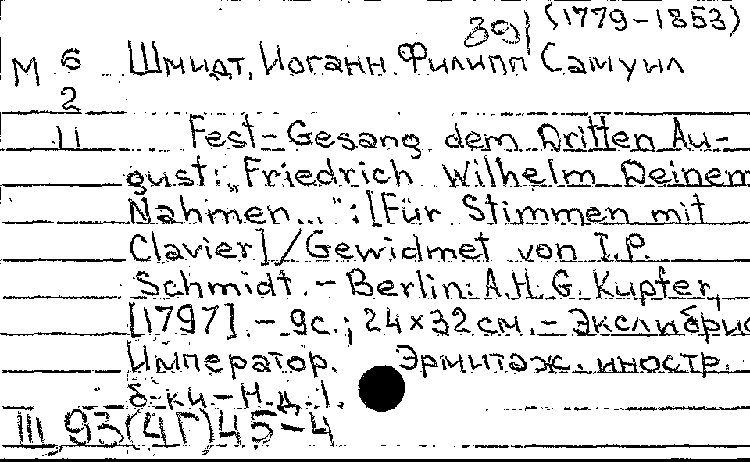 39 (1779-1853)
М 6 Шмидт, Иоганн Филипп Самуил
2
11 Fest-Gesang dem Dritten Au-
gust: „Friedrich Wilhelm Deinem
Nahmen..." : [Für Stimmen mit
Clavier] / Gewidmet von I.P.
Schmidt. - Berlin: A.H.G. Kupfer,
[1797]. - 9с.; 24×32см. - Экслибрис
Император. Эрмитаж. иностр.
б-ки - Н.д. 1.
III, 93(4Г)45-4